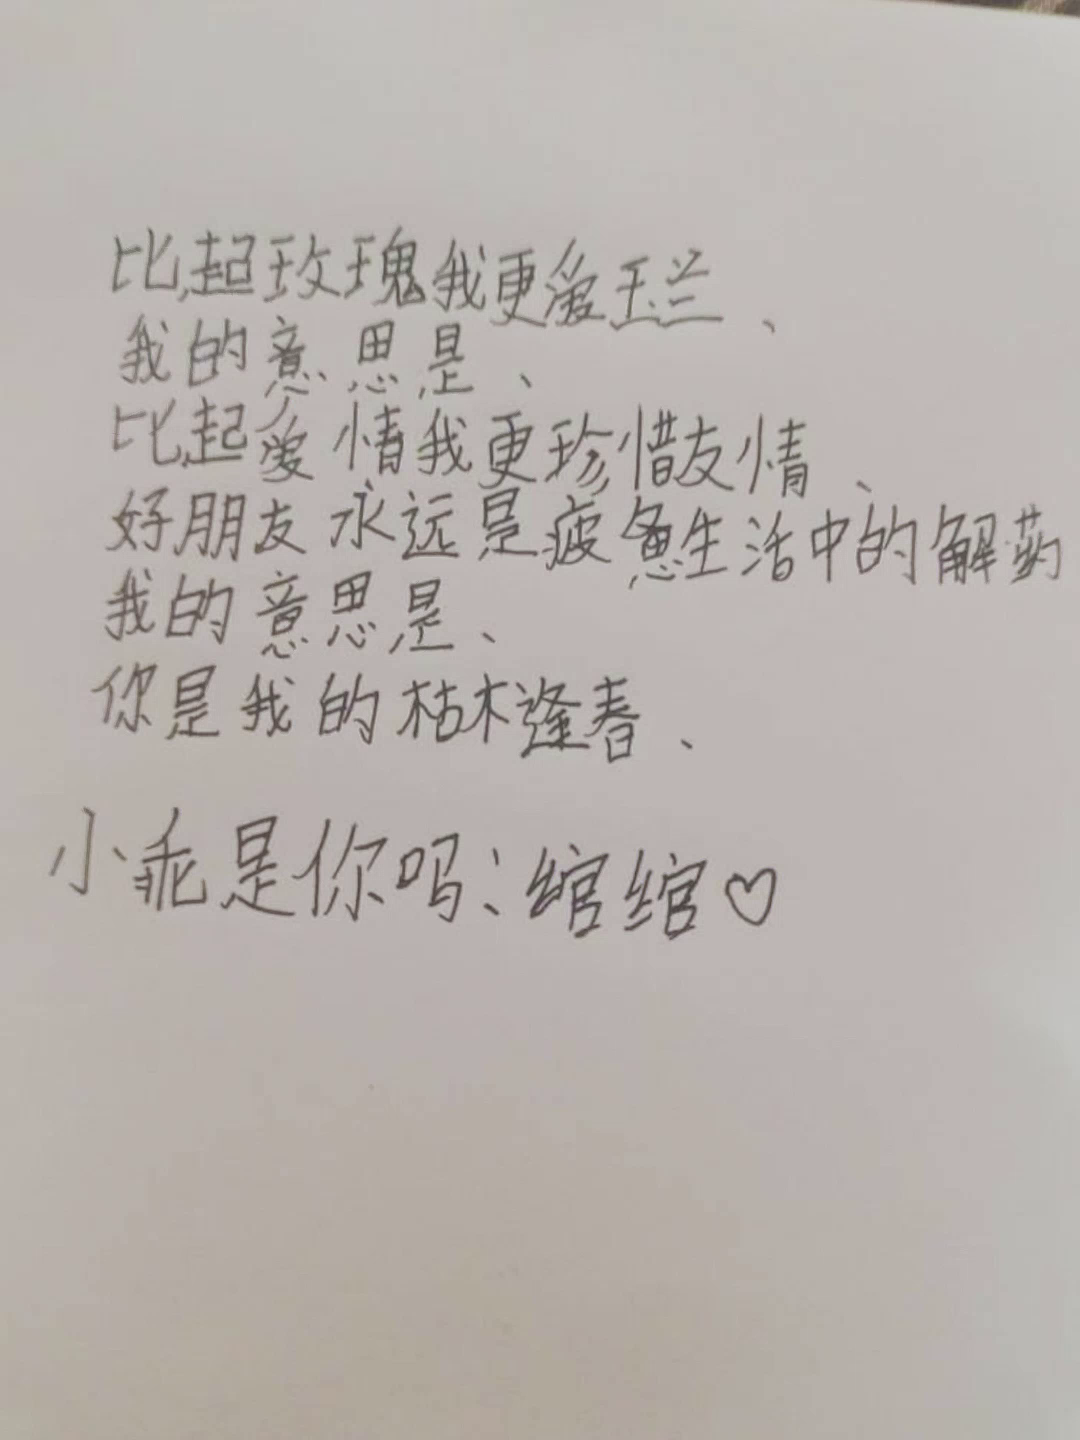 比起玫瑰我更爱玉兰、
我的意思是、
比起爱情我更珍惜友情、
好朋友永远是疲惫生活中的解药
我的意思是、
你是我的枯木逢春、
小乖是你吗、绾绾♡